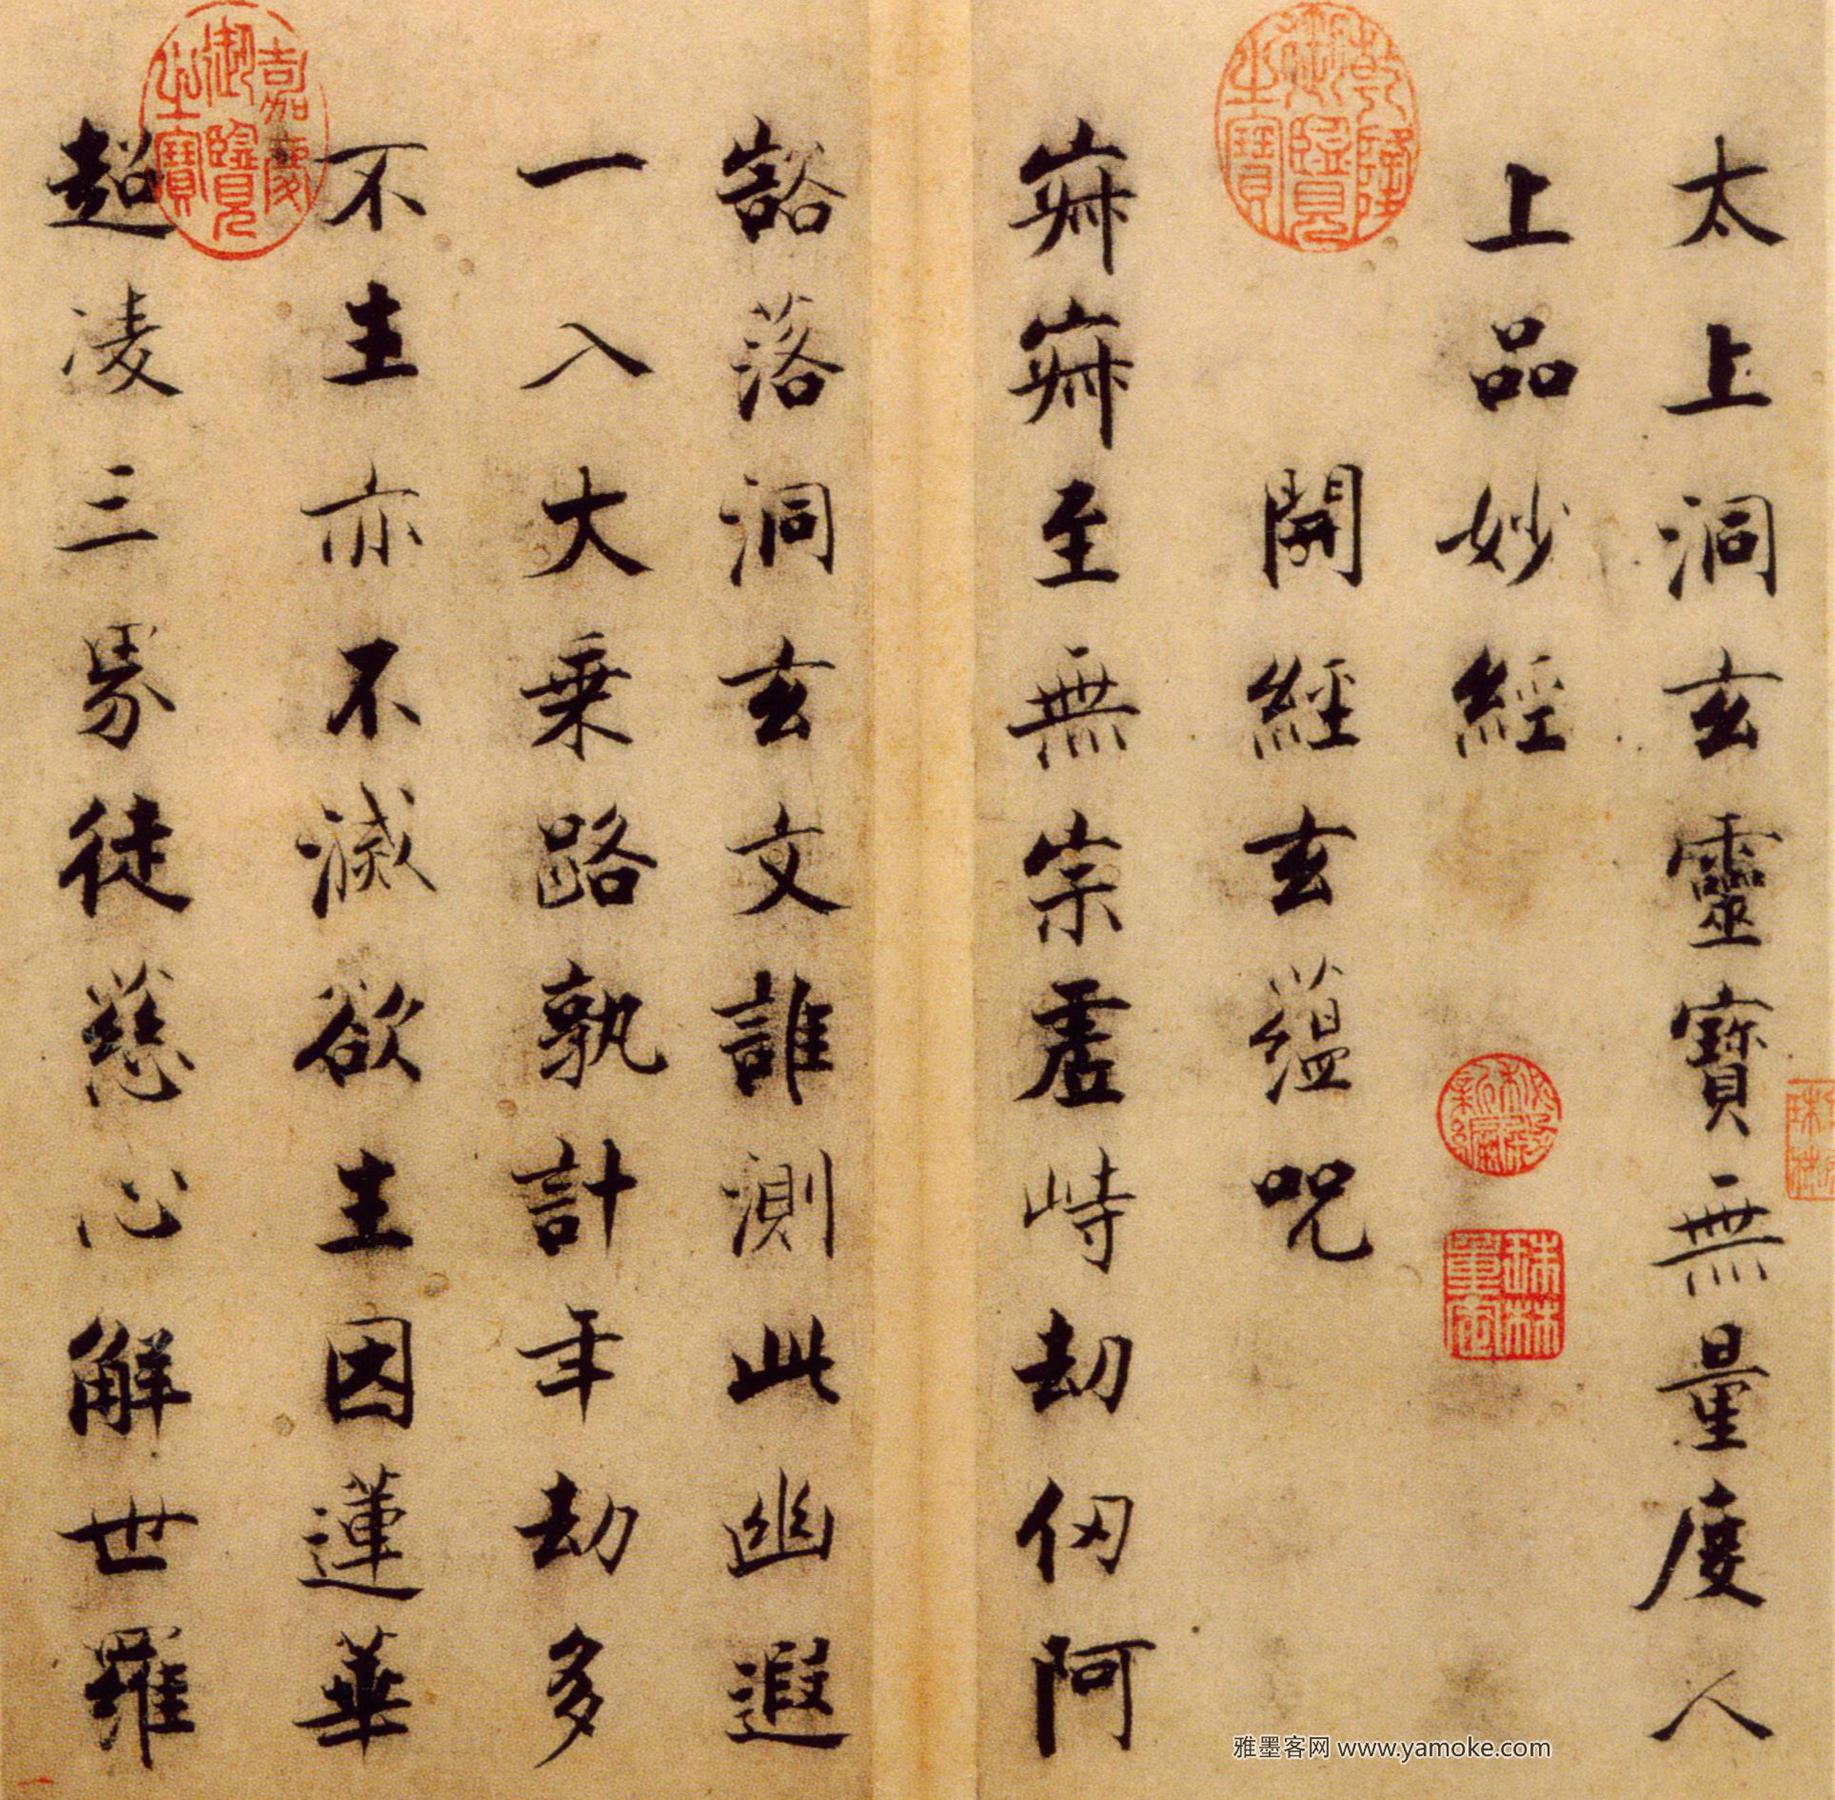 太上洞玄靈寶無量度人
上品妙經
開經玄蘊呪
寂寂至無宗虛峙劫仞阿
豁落洞玄文誰測此幽遐
一入大乘路孰計年劫多
不生亦不滅欲生因蓮華
超凌三界徒慈心解世羅
乾隆御覽之寶
嘉慶御覽之寶
秘殿新編
珠林重定
雅墨客网 www.yamoke.com